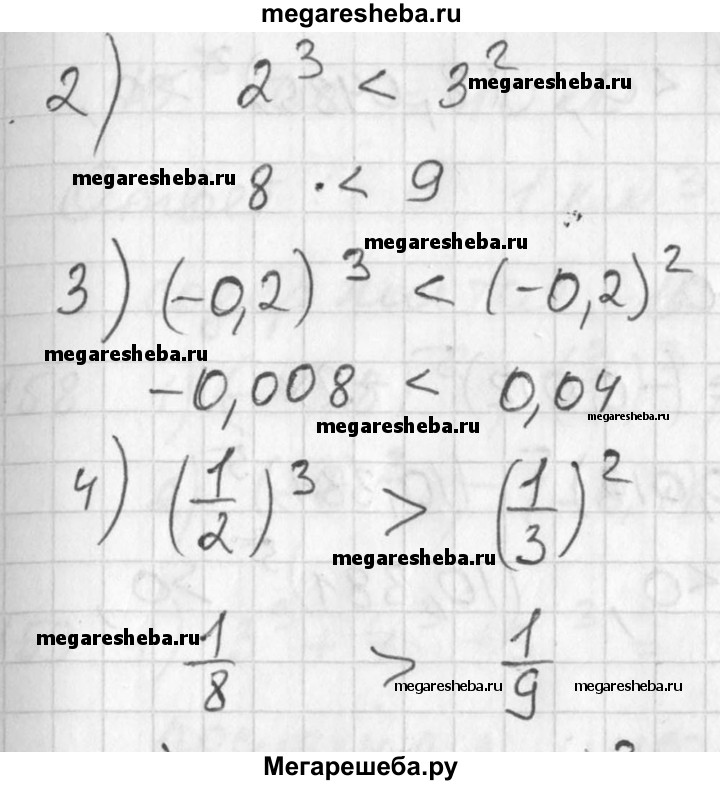 megaresheba.ru
2) 2³ < 3²
megaresheba.ru
megaresheba.ru
8 < 9
megaresheba.ru
3) (-0,2)³ < (-0,2)²
megaresheba.ru
-0,008 < 0,04
megaresheba.ru
megaresheba.ru
4) (1/2)³ > (1/3)²
megaresheba.ru
megaresheba.ru
1/8 > 1/9
megaresheba.ru
megaresheba.ru
Мегарешеба.ру